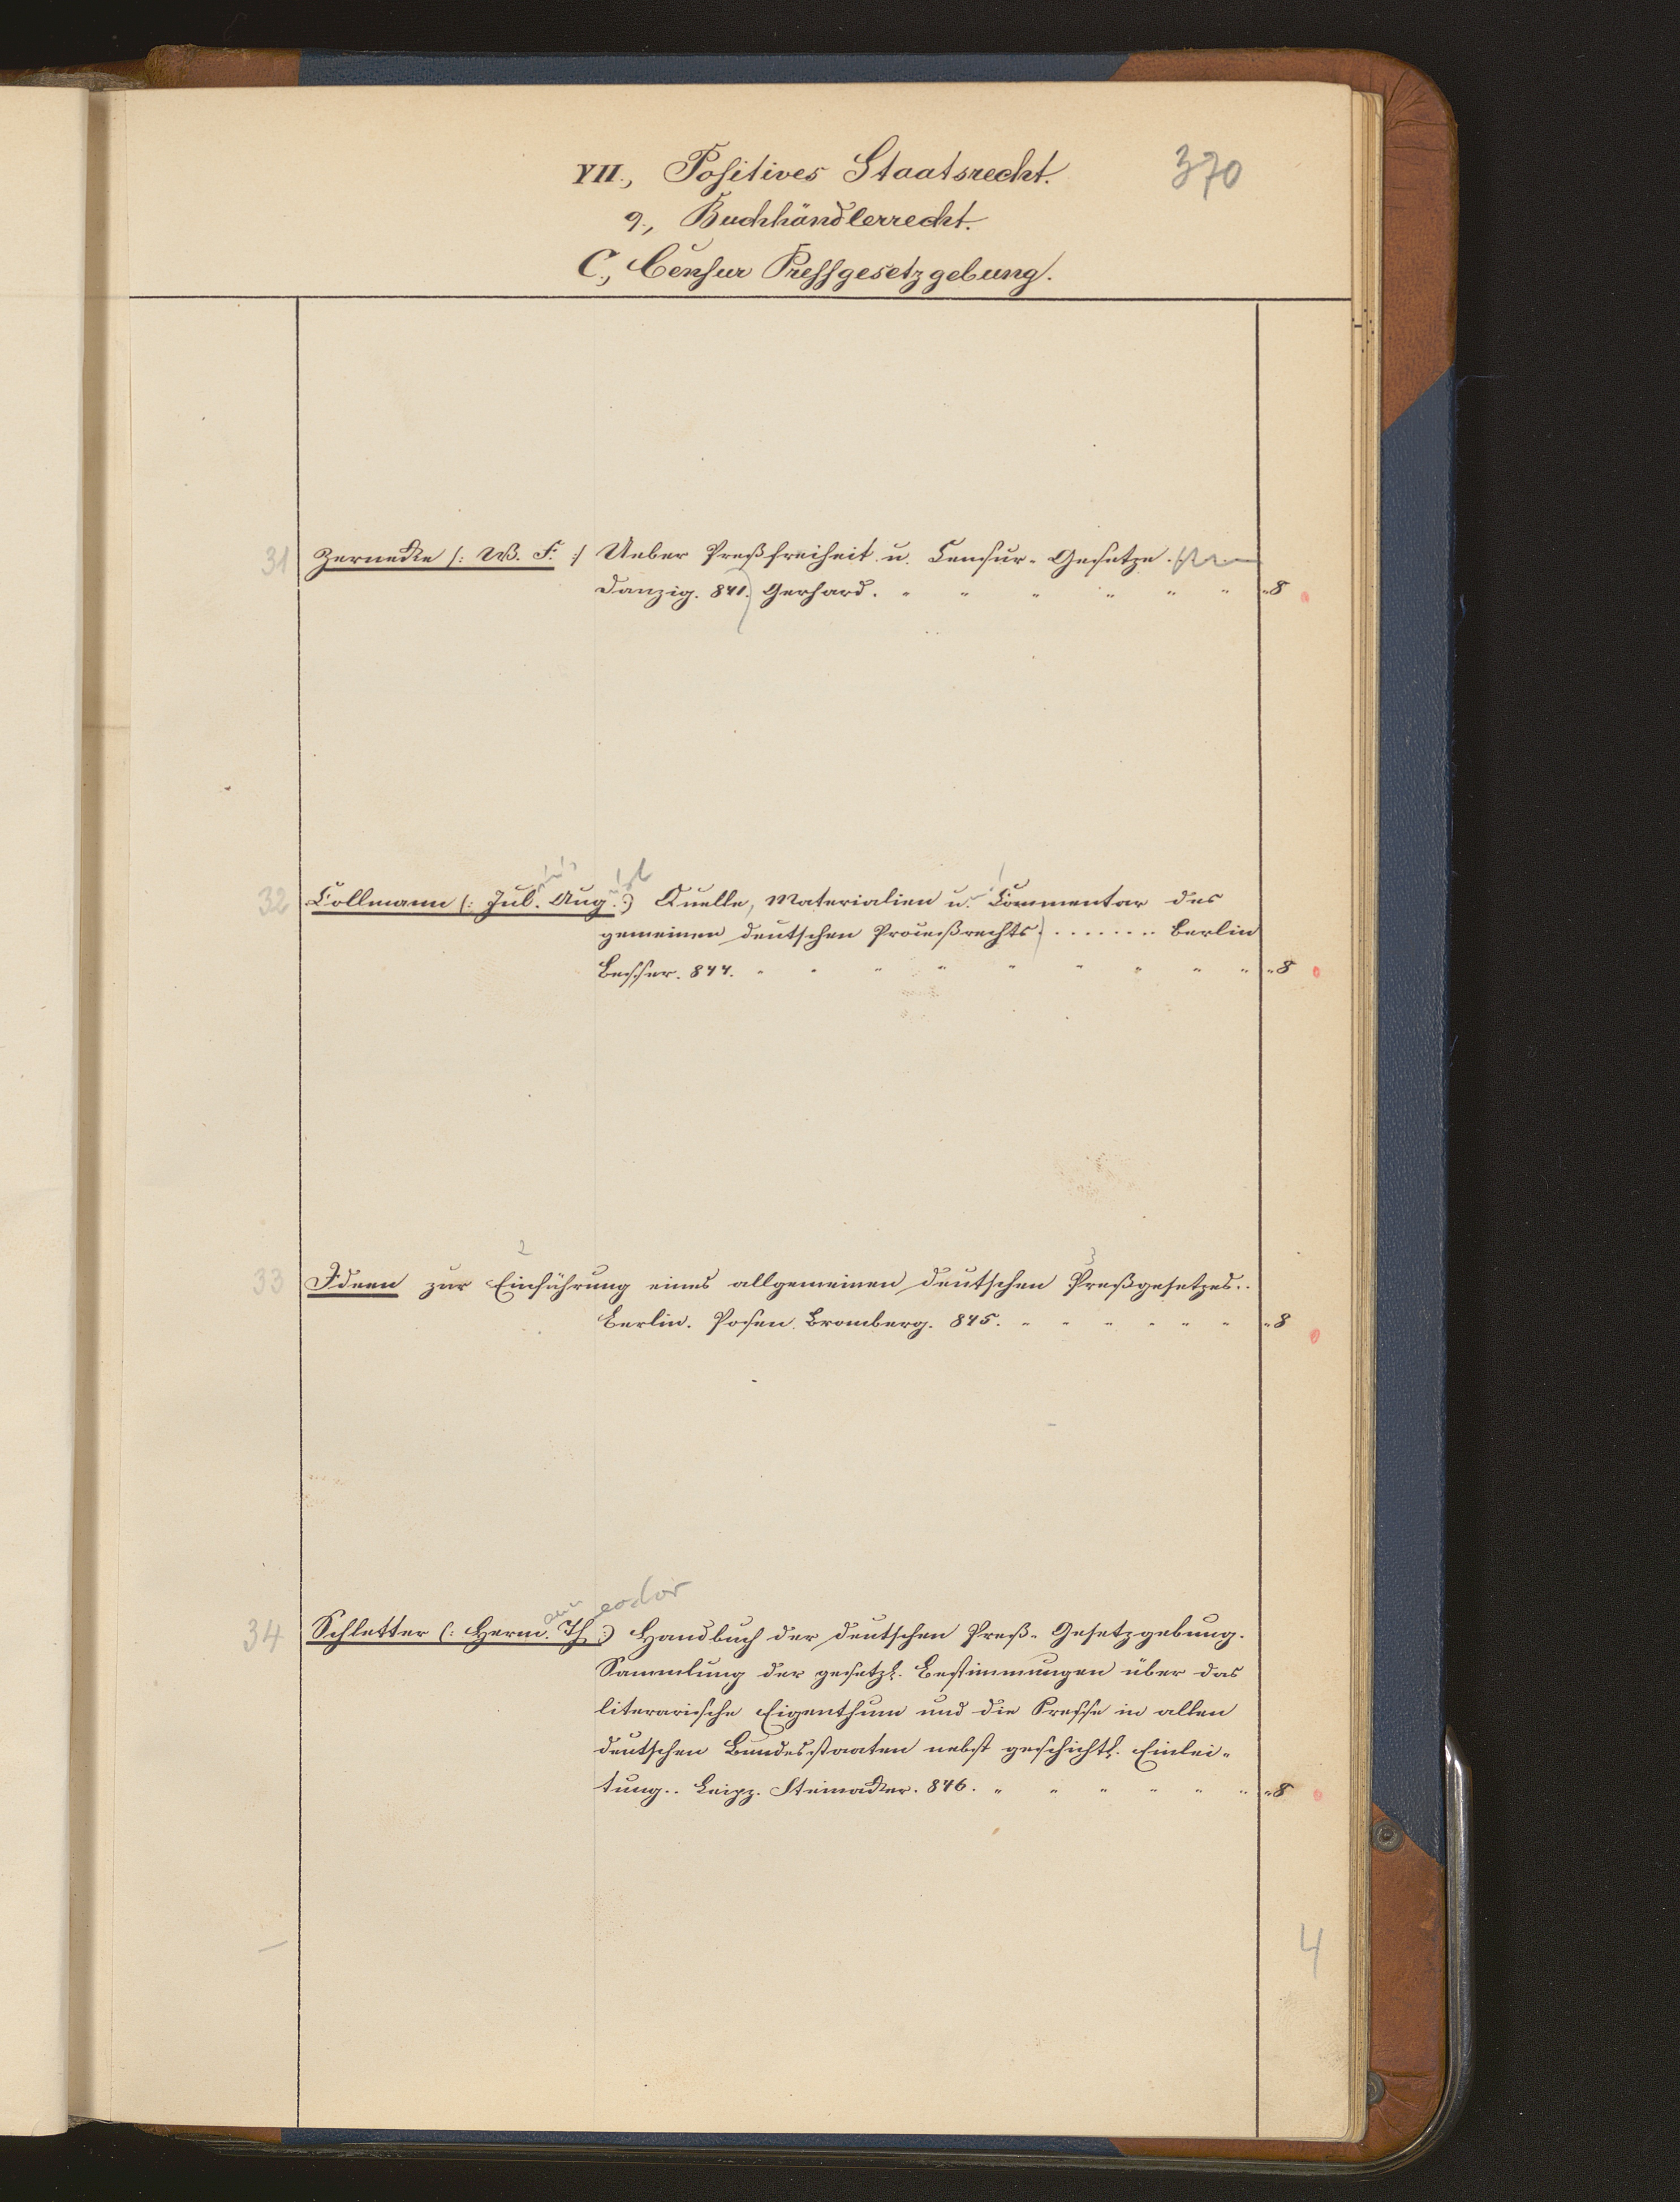 370
VII., Positives Staatsrecht.
9., Buchhändlerrecht.
C., Censur Pressgesetzgebung.
31 Zernecke /: W. F. :/ Ueber Preßfreiheit u. Censur-Gesetze.
Danzig. 841. Gerhard. " " " " " " "8
32 Collmann (: Jul. Aug. :) Quelle, Materialien u. Commentar des
gemeinen deutschen Preußrechts. ........ Berlin
Besser. 844. " " " " " " " " " "8
2 3
33 Ideen zur Einführung eines allgemeinen deutschen Preßgesetzes..
Berlin. Posen. Bromberg. 845. " " " " " " "8
eodor
34 Schletter (: Herm. Th :) Handbuch der deutschen Preß-Gesetzgebung.
Sammlung der gesetzl. Bestimmungen über das
literarische Eigenthum und die Presse in allen
deutschen Bundesstaaten nebst geschichtl. Einlei-
tung.. Leipz. Steinacker. 846. " " " " " " "8
4